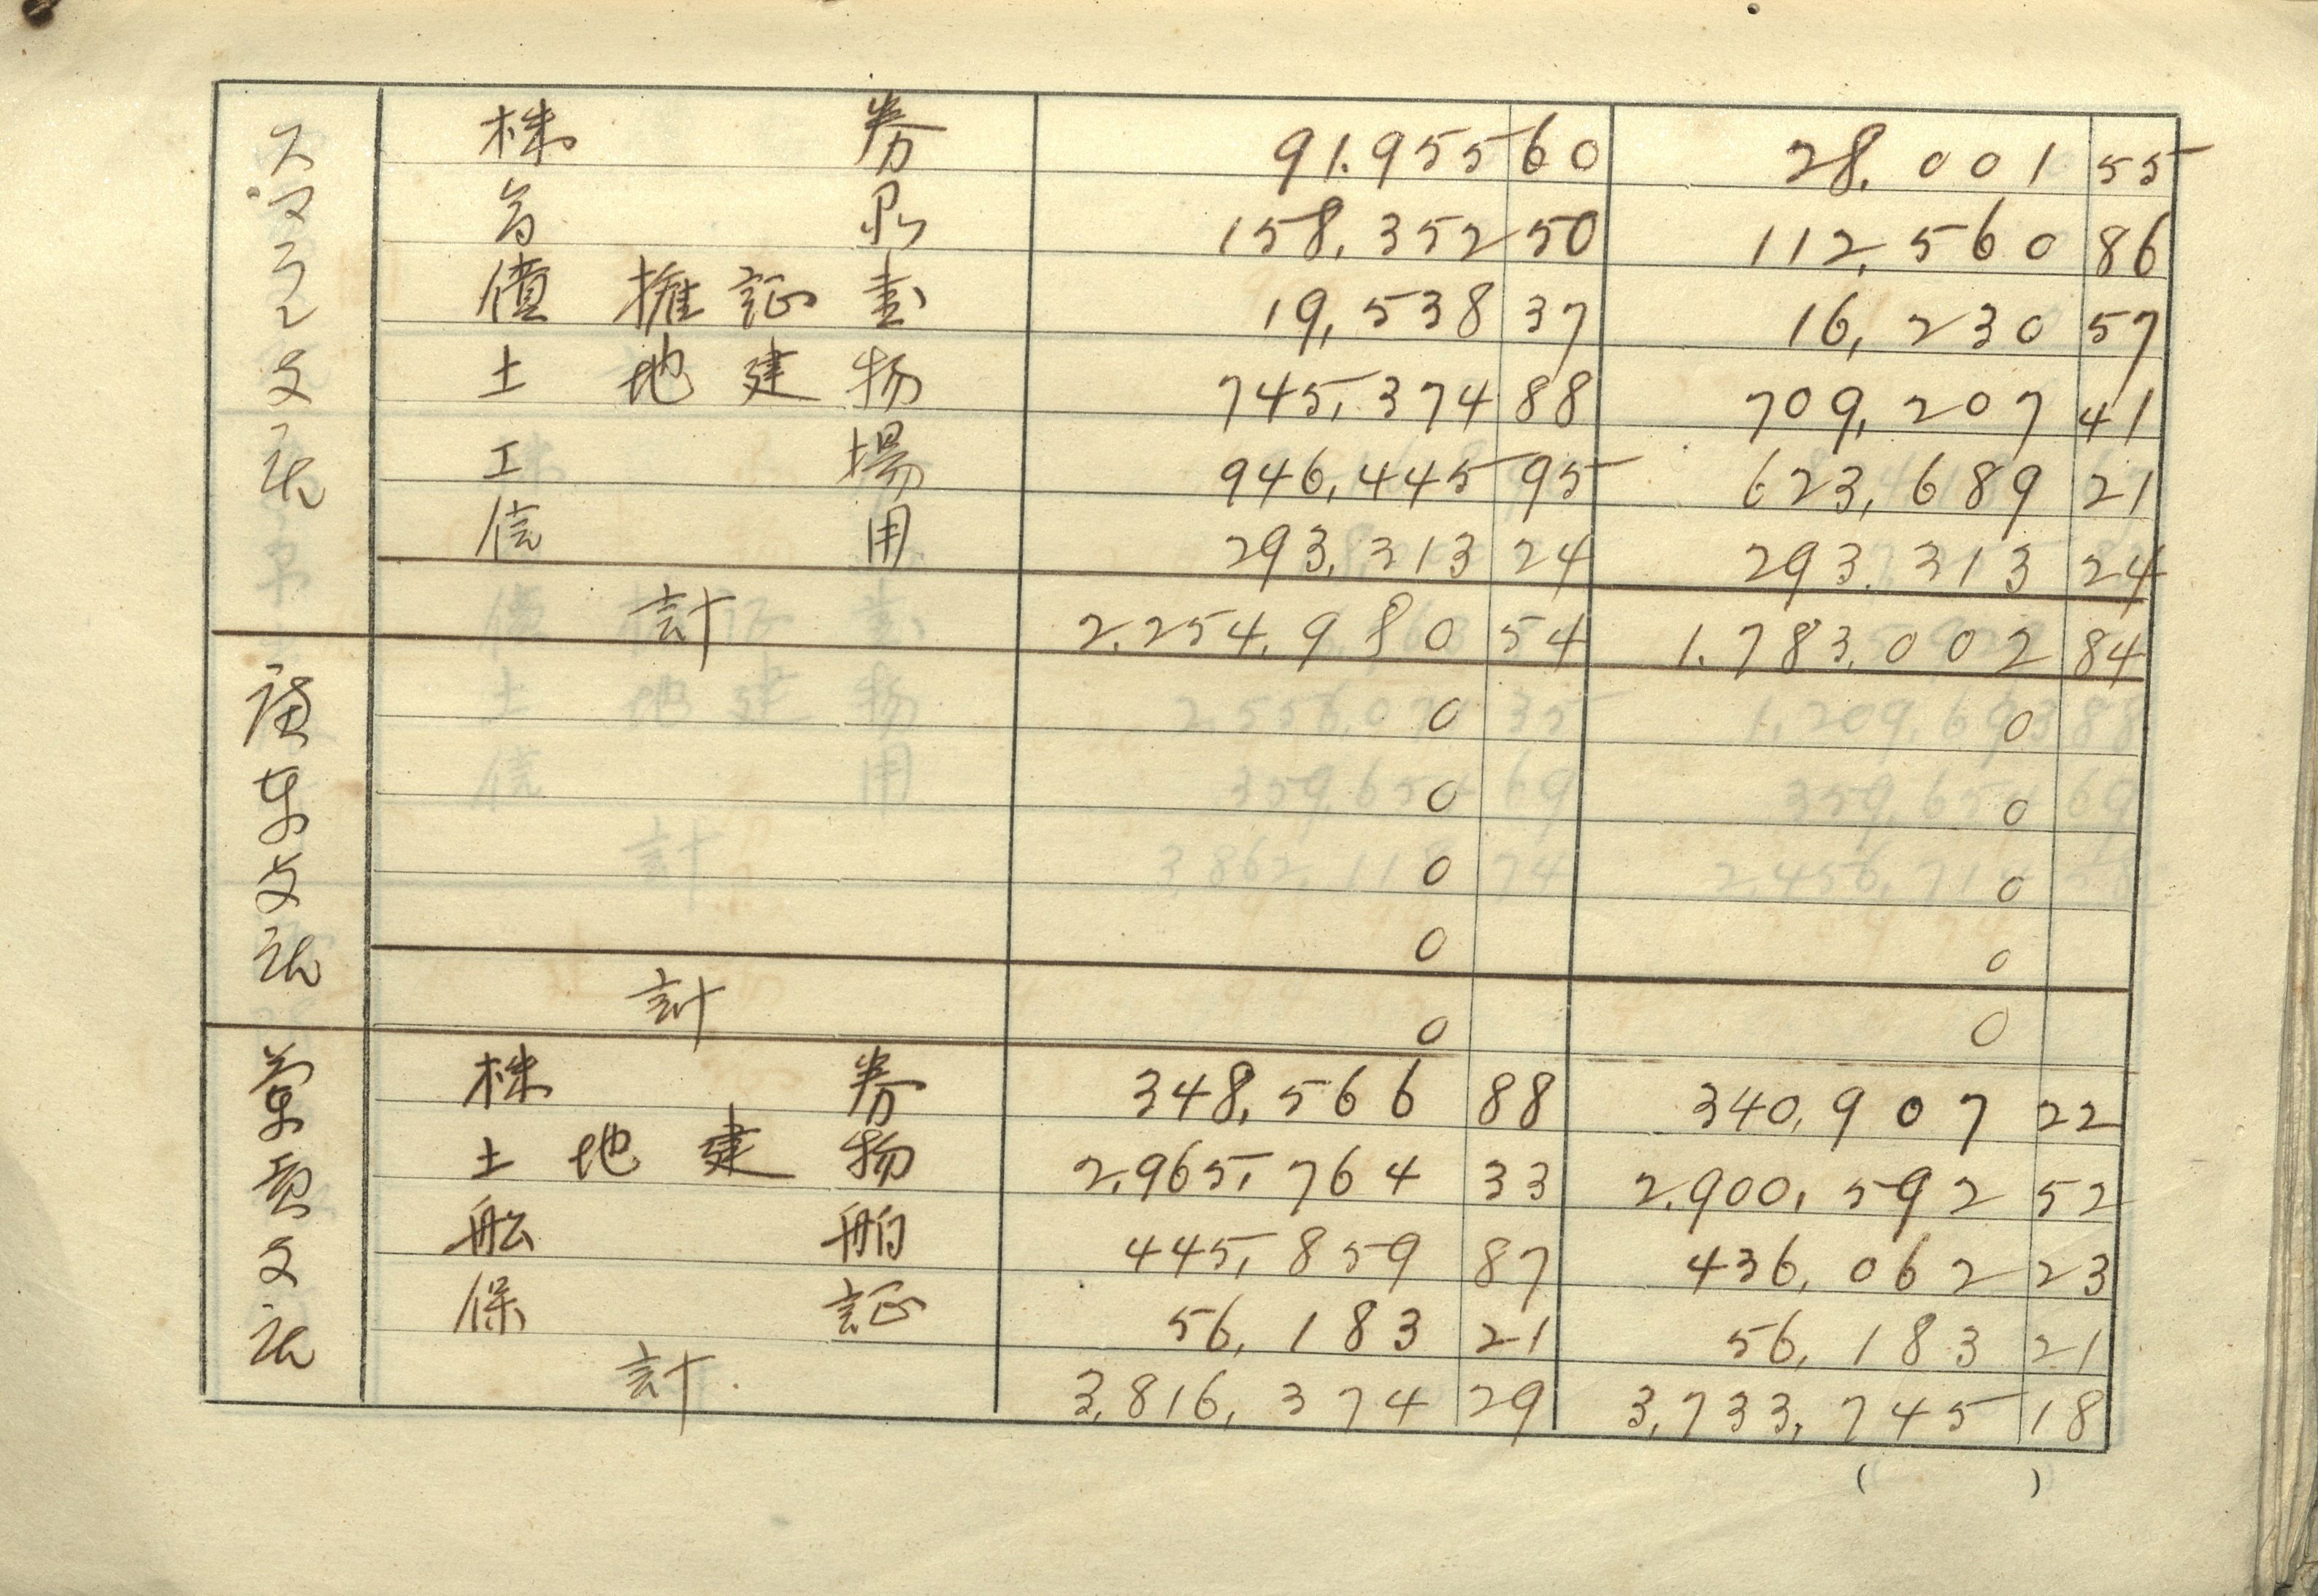 株券 91.955 60 28.001 55
158.352 50 112.560 86
債権証書 19,538 37 16,230 57
土地建物 745,374 88 709,207 41
工場 946,445 95 623,689 21
信用 293,313 24 293.313 24
計 2.254.980 54 1.783.002 84
0 0
0 0
0 0
0 0
計 0 0
株券 348,566 88 340,907 22
土地建物 2,965,764 33 2.900,592 52
船舶 445,859 87 436,062 23
保証 56,183 21 56,183 21
計. 3,816,374 29 3,733,745 18
( )